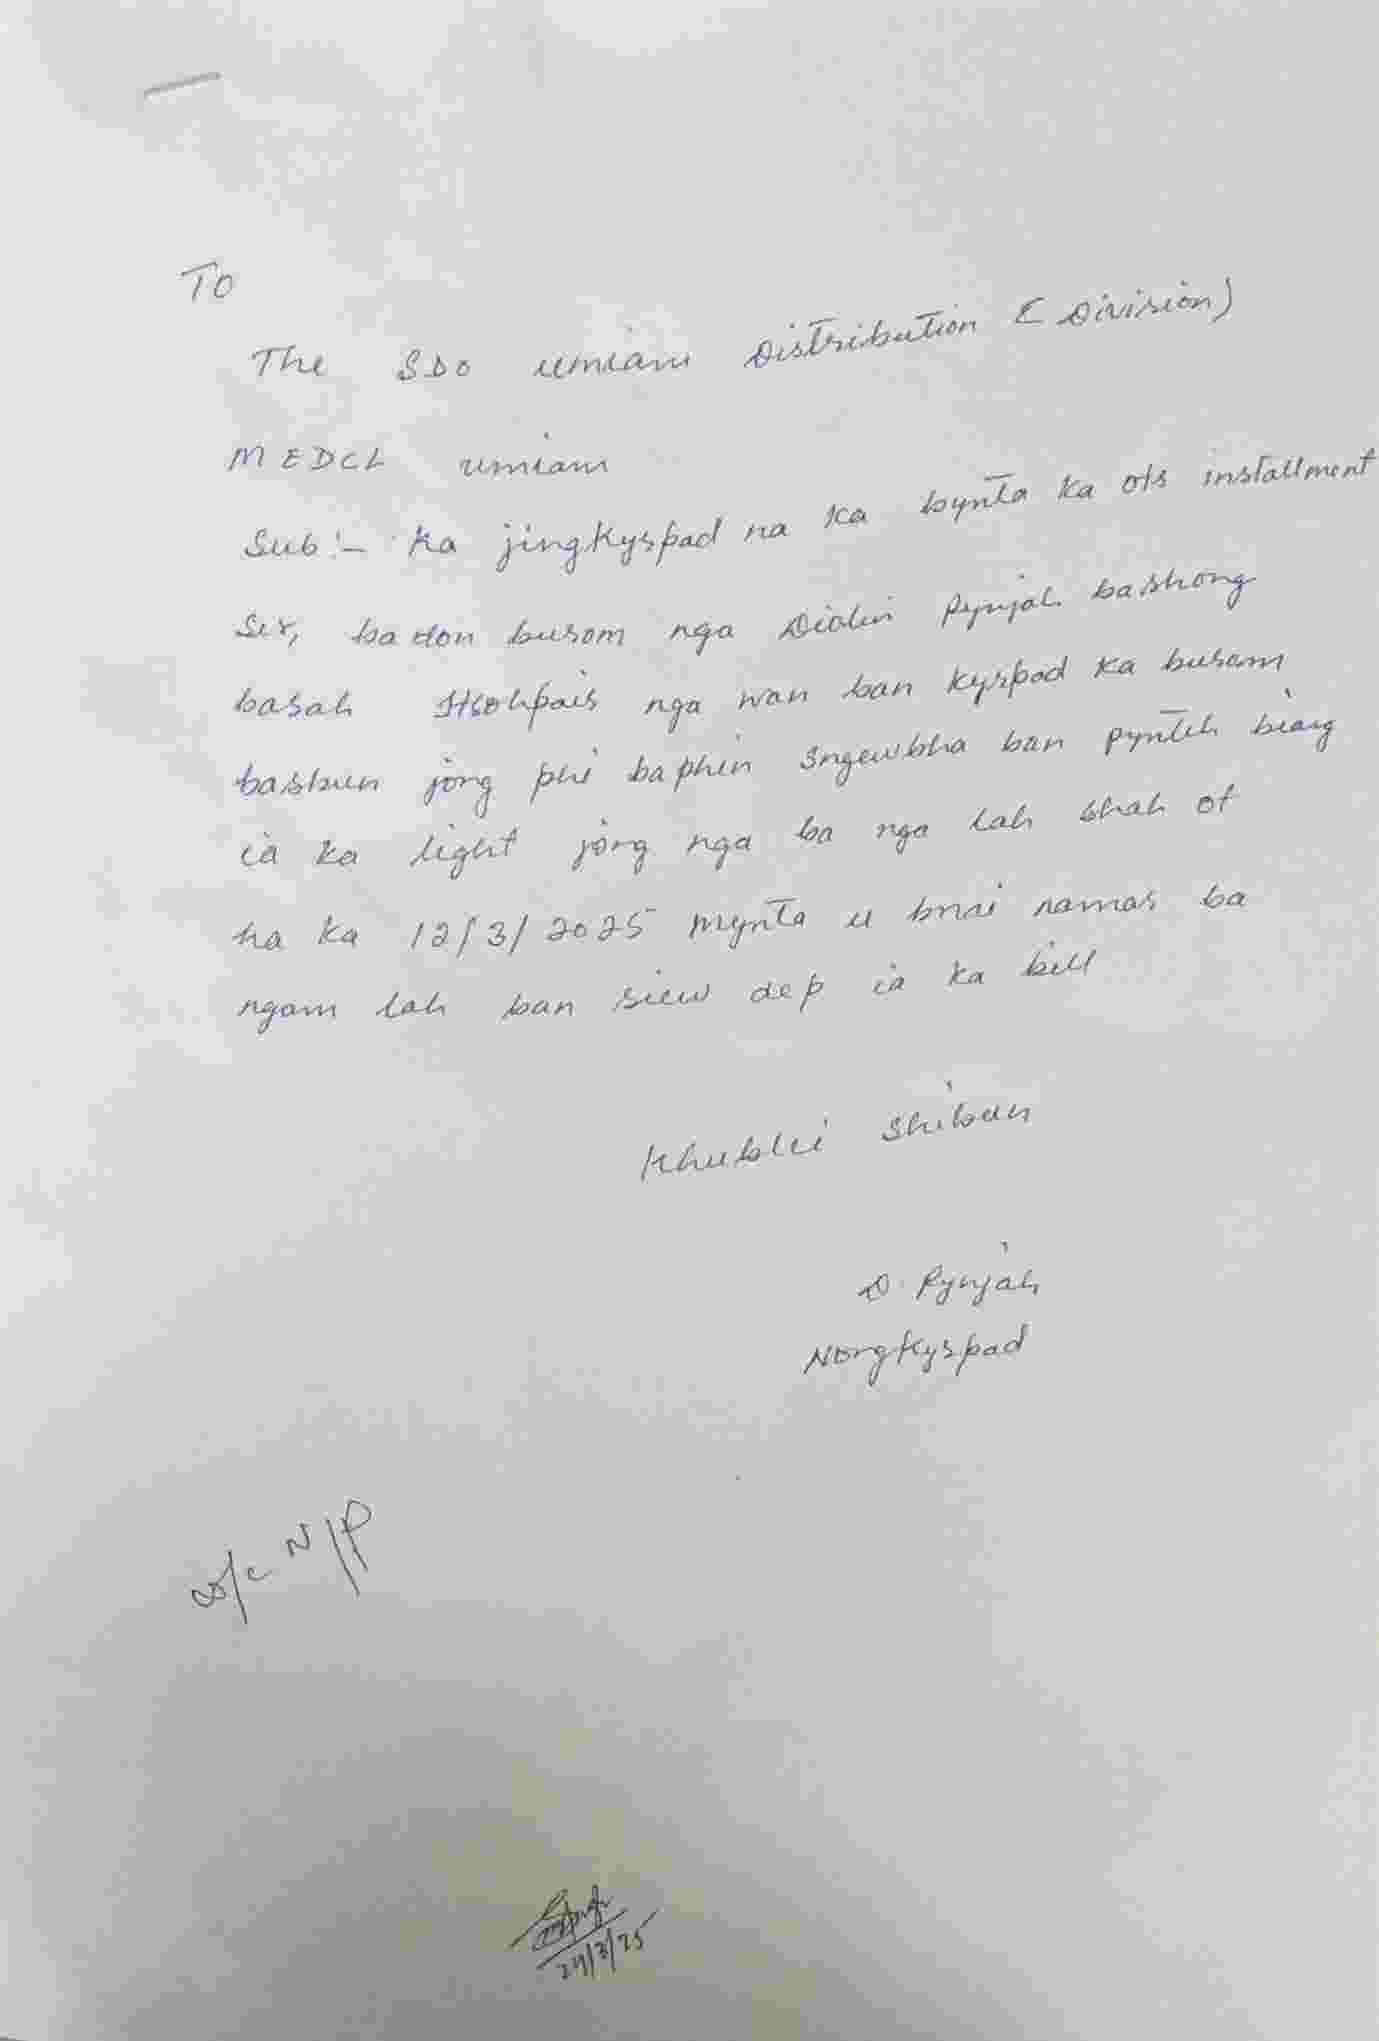 To
The SDO umiam Distribution (Division)
MEDCL umiam
Sub:- ka jingkyrpad na ka bynta ka ots installment
Ser, ba don burom nga Dialin Pynjah bashong
basah Itsohpair nga wan ban kyrpad ka buram
bashun jong phi baphin sngewbha ban pynteh biang
ia ka light jong nga ba nga lah shah ot
ha ka 12/3/2025 mynta u bnai namar ba
ngam lah ban siew dep ia ka bill
Khublei Shibun
D. Pynjah
Nongkyrpad
w/c N/P
24/3/25